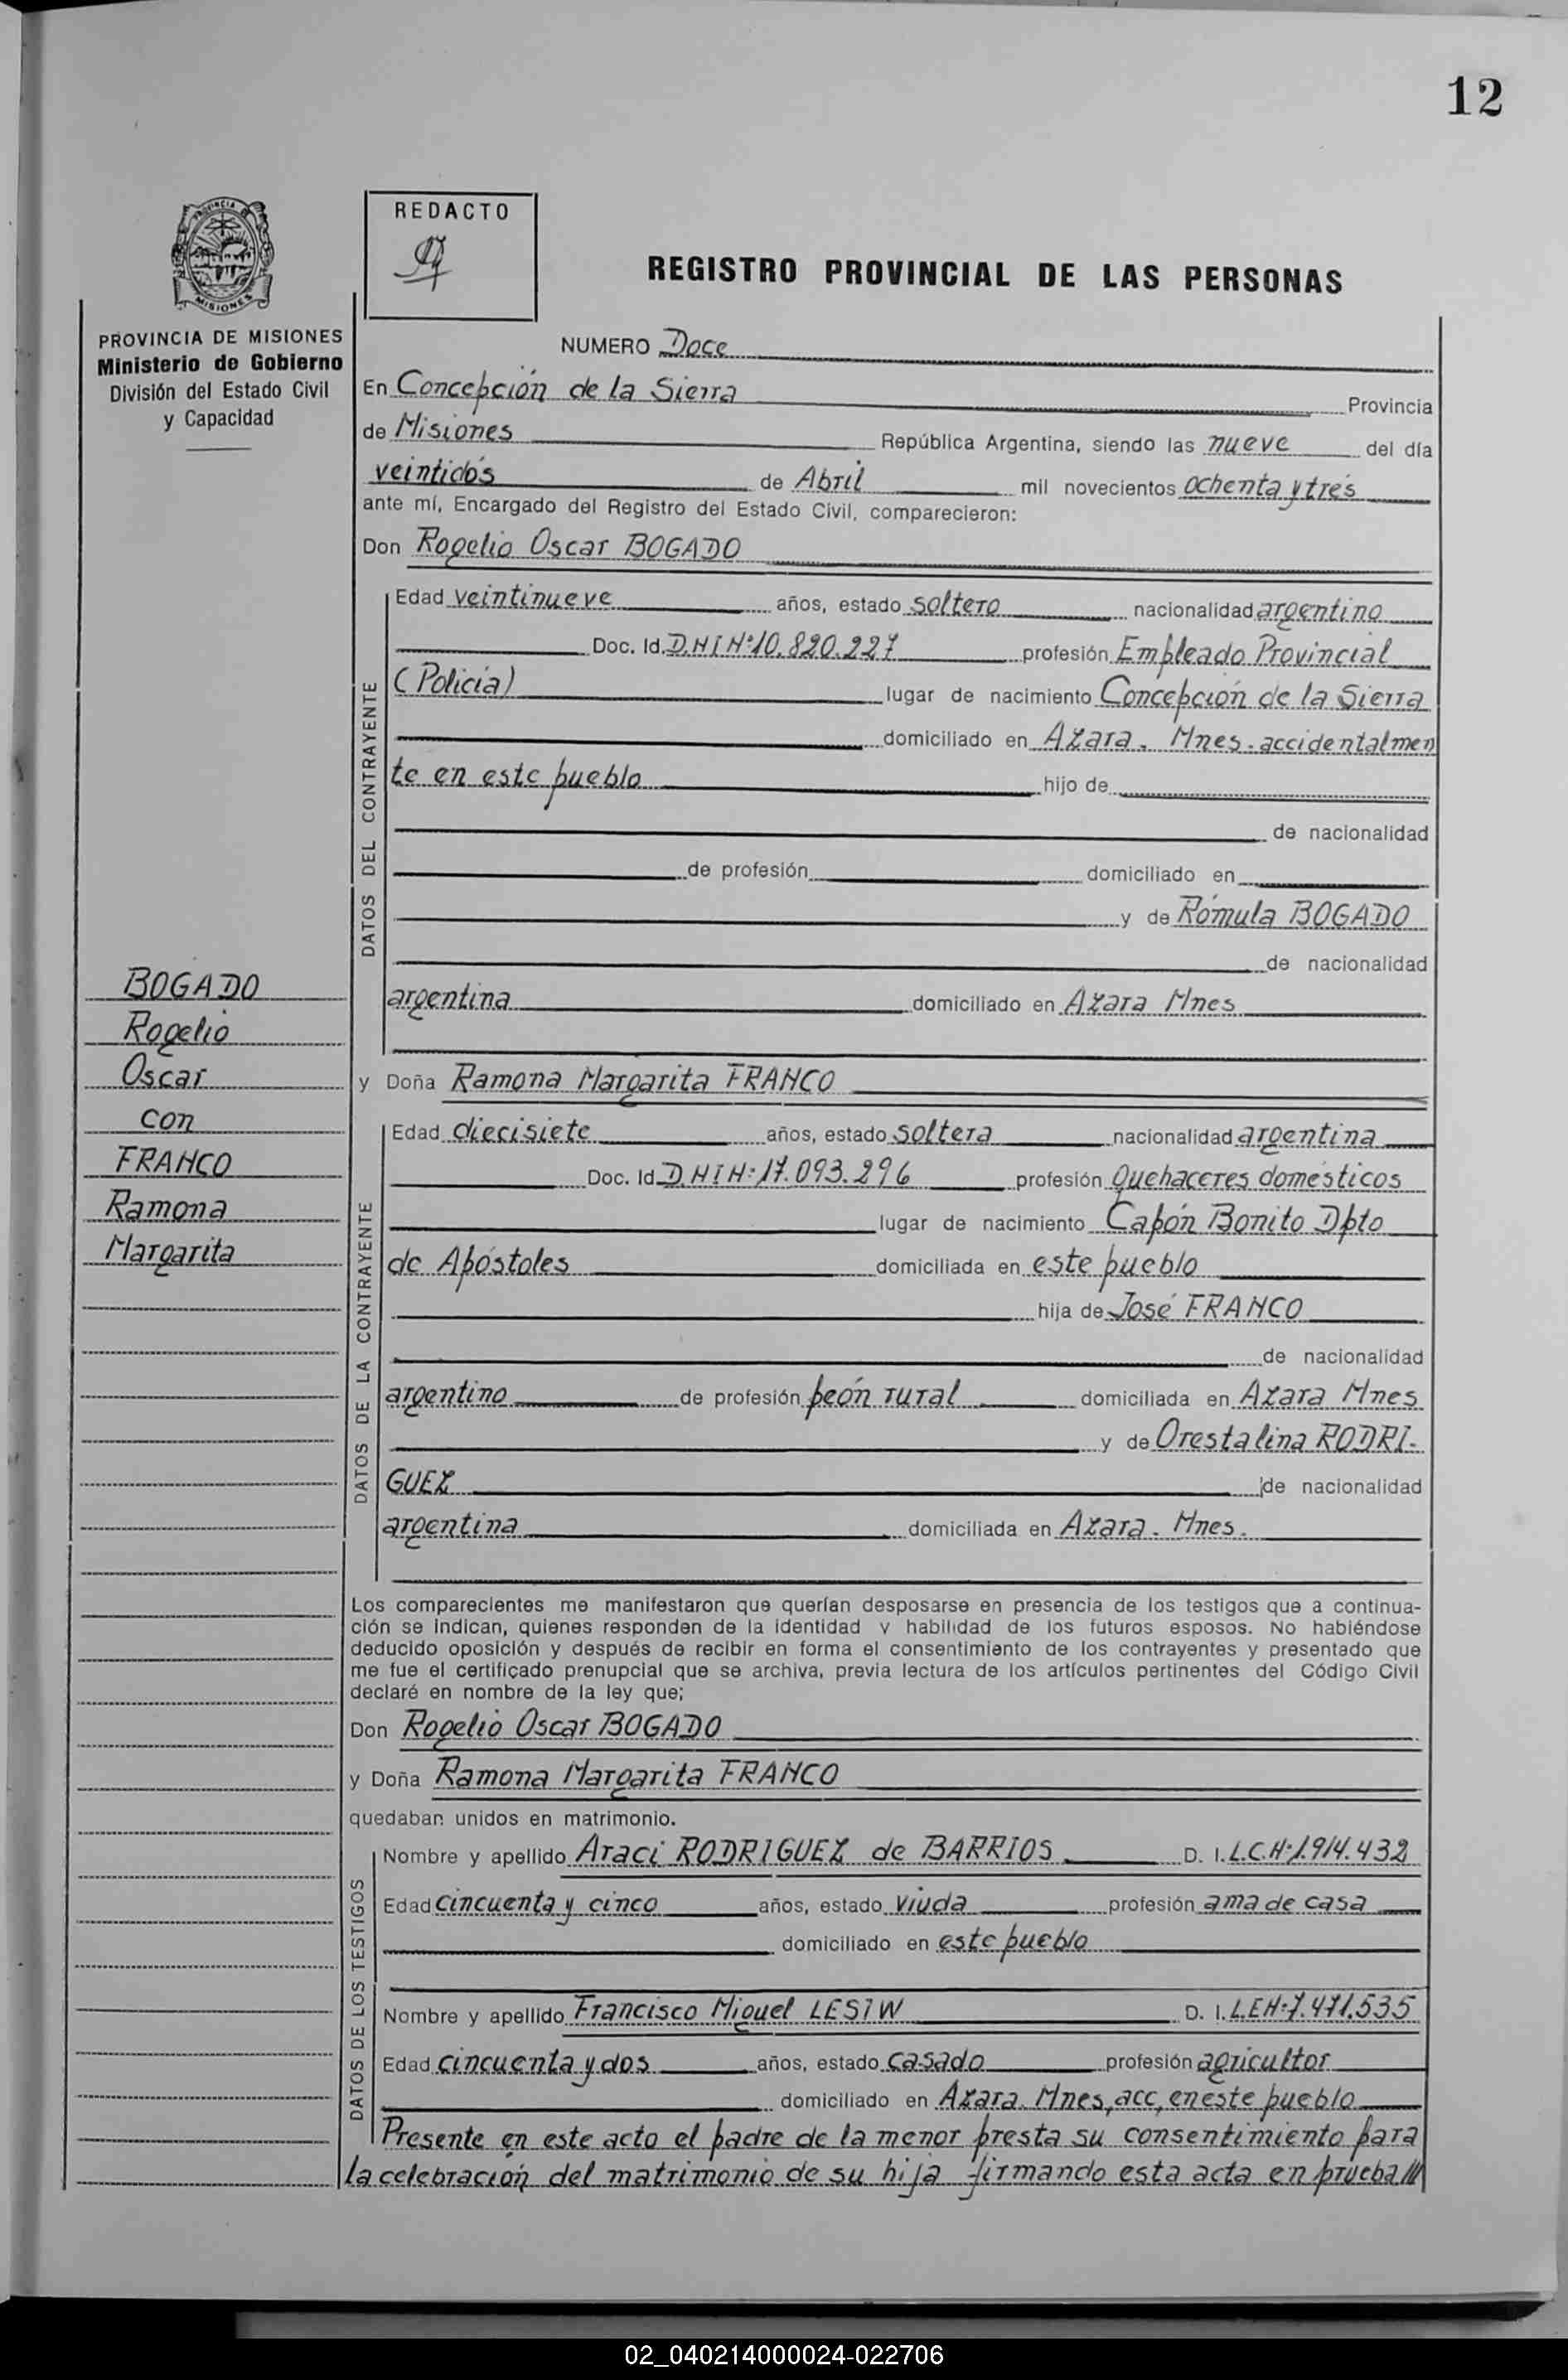 12
PROVINCIA DE
MISIONES
REDACTO
REGISTRO PROVINCIAL DE LAS PERSONAS
PROVINCIA DE MISIONES
Ministerio de Gobierno
División del Estado Civil
y Capacidad
NUMERO Doce
En Concepción de la Sierra Provincia
de Misiones República Argentina, siendo las nueve del día
veintidós de Abril mil novecientos ochenta y tres
ante mí, Encargado del Registro del Estado Civil, comparecieron:
Don Rogelio Oscar BOGADO
DATOS DEL CONTRAYENTE
Edad veintinueve años, estado soltero nacionalidad argentino
Doc. Id. D.N I Nº 10.820.227 profesión Empleado Provincial
(Policía) lugar de nacimiento Concepción de la Sierra
domiciliado en Azara. Mnes. accidentalmen
te en este pueblo hijo de
de nacionalidad
de profesión domiciliado en
y de Rómula BOGADO
de nacionalidad
argentina domiciliado en Azara Mnes
BOGADO
Rogelio
Oscar
con
FRANCO
Ramona
Margarita
y Doña Ramona Margarita FRANCO
DATOS DE LA CONTRAYENTE
Edad diecisiete años, estado soltera nacionalidad argentina
Doc. Id. D.N I Nº 17.093.296 profesión Quehaceres domésticos
lugar de nacimiento Capón Bonito Dpto
de Apóstoles domiciliada en este pueblo
hija de José FRANCO
de nacionalidad
argentino de profesión peón rural domiciliada en Azara Mnes
y de Orestalina RODRI-
GUEZ de nacionalidad
argentina domiciliada en Azara. Mnes.
Los comparecientes me manifestaron que querían desposarse en presencia de los testigos que a continua-
ción se indican, quienes responden de la identidad y habilidad de los futuros esposos. No habiéndose
deducido oposición y después de recibir en forma el consentimiento de los contrayentes y presentado que
me fue el certificado prenupcial que se archiva, previa lectura de los artículos pertinentes del Código Civil
declaré en nombre de la ley que;
Don Rogelio Oscar BOGADO
y Doña Ramona Margarita FRANCO
quedaban unidos en matrimonio.
DATOS DE LOS TESTIGOS
Nombre y apellido Araci RODRIGUEZ de BARRIOS D. I. L.C.Nº 1.914.432
Edad cincuenta y cinco años, estado viuda profesión ama de casa
domiciliado en este pueblo
Nombre y apellido Francisco Miguel LESIW D. I. L.E Nº 7.471.535
Edad cincuenta y dos años, estado casado profesión agricultor
domiciliado en Azara. Mnes, acc, en este pueblo
Presente en este acto el padre de la menor presta su consentimiento para
la celebración del matrimonio de su hija firmando esta acta en prueba ///
02_040214000024-022706